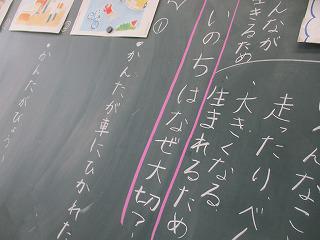 んなこ
走ったり、べん
、大きくなる
みんなが
生きるため
、生まれるため
いのちはなぜ大切？
①
・かんたが車にひかれた
・かんたがびょう